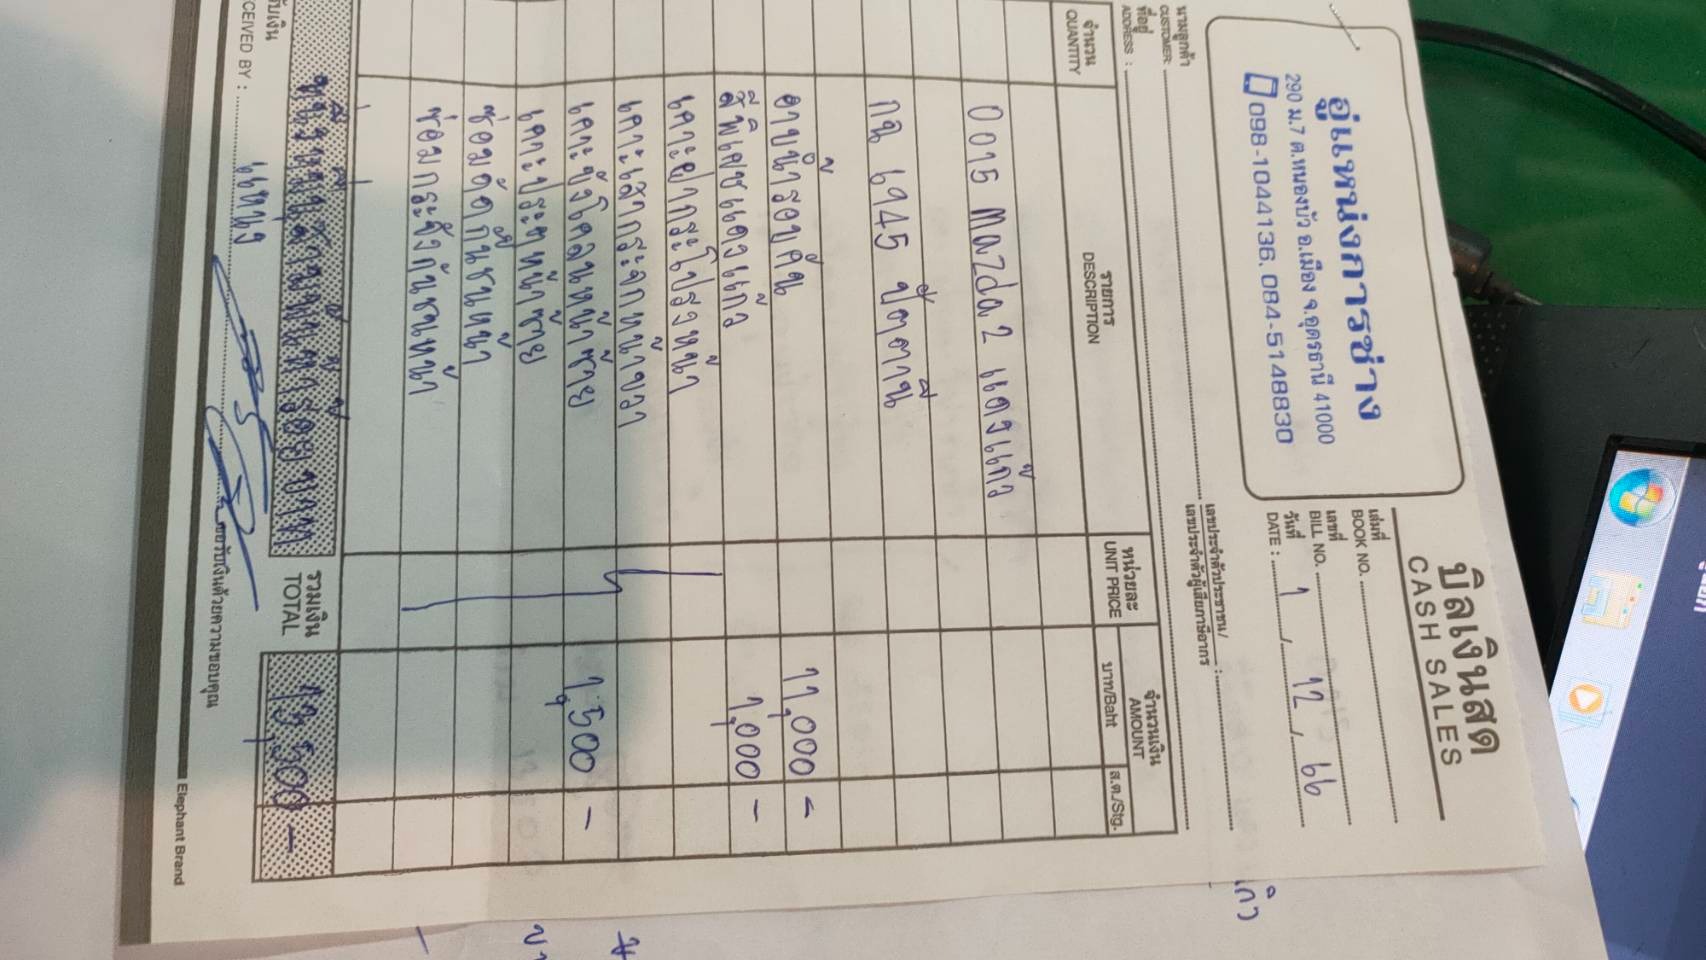 อู่แหน่งการช่าง
290 ม.7 ต.หนองบัว อ.เมือง จ.อุดรธานี 41000
098-1044136, 084-5148830
บิลเงินสด
CASH SALES
เล่มที่
BOOK NO.
เลขที่
BILL NO.
วันที่
DATE : 1 / 12 / 66
นามลูกค้า
CUSTOMER:
ที่อยู่
ADDRESS :
เลขประจำตัวประชาชน/
เลขประจำตัวผู้เสียภาษีอากร :
จำนวน รายการ หน่วยละ จำนวนเงิน
QUANTITY DESCRIPTION UNIT PRICE AMOUNT
บาท/Baht ส.ต./Stg.
0015 Mazda2 แดงแก้ว
กฉ 6945 ปัตตานี
อาบน้ำรอบคัน 11,000 -
สีพิเศษแดงแก้ว 1,000 -
เคาะฝากระโปรงหน้า
เคาะเสากระจกหน้าขวา
เคาะบังโคลนหน้าซ้าย 1,500 -
เคาะประตูหน้าซ้าย
ซ่อมดัดกันชนหน้า
ซ่อมกระจังกันชนหน้า
หนึ่งหมื่นสามพันห้าร้อยบาท
รวมเงิน
TOTAL 13,500 -
รับเงิน
CEIVED BY : แหน่ง
ขอรับเงินด้วยความขอบคุณ
Elephant Brand